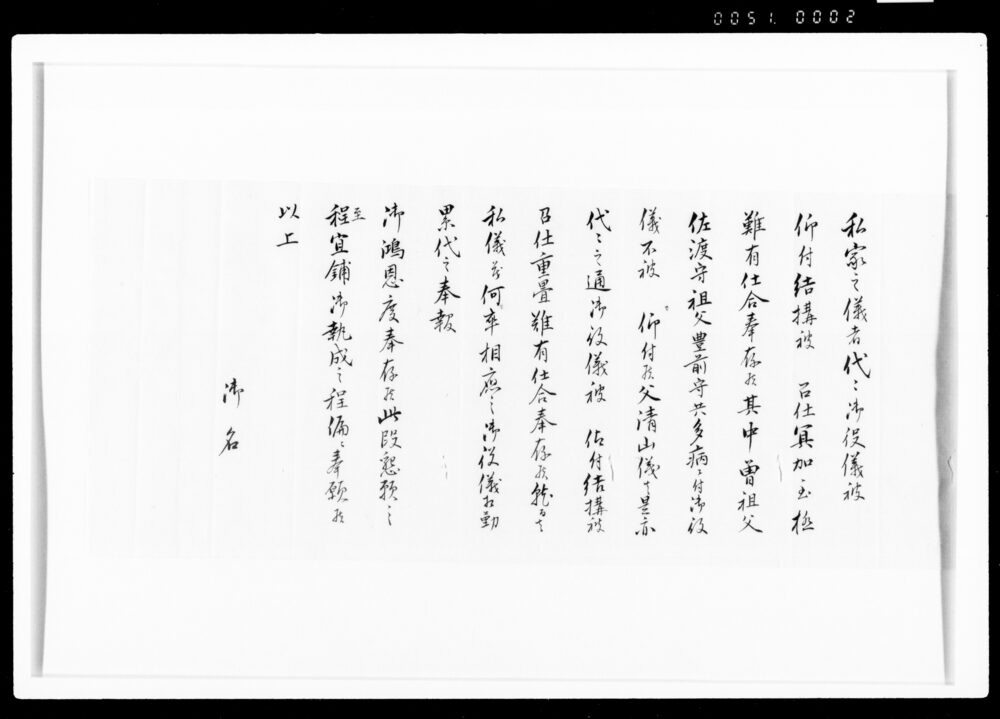 0051. 0002
私家之儀者代々御役儀被
仰付結構被 召仕冥加至極
難有仕合奉存候其中曽祖父
佐渡守祖父豊前守共多病ニ付御役
儀不被 仰付候父清山儀ハ是亦
代々之通御役儀被 仰付結構被
召仕重畳難有仕合奉存候就者
私儀茂何卒相応之御役儀相勤
累代之奉報
御鴻恩度奉存候此段懇願之
至
程宜舗御執成之程偏ニ奉願候
以上
御名